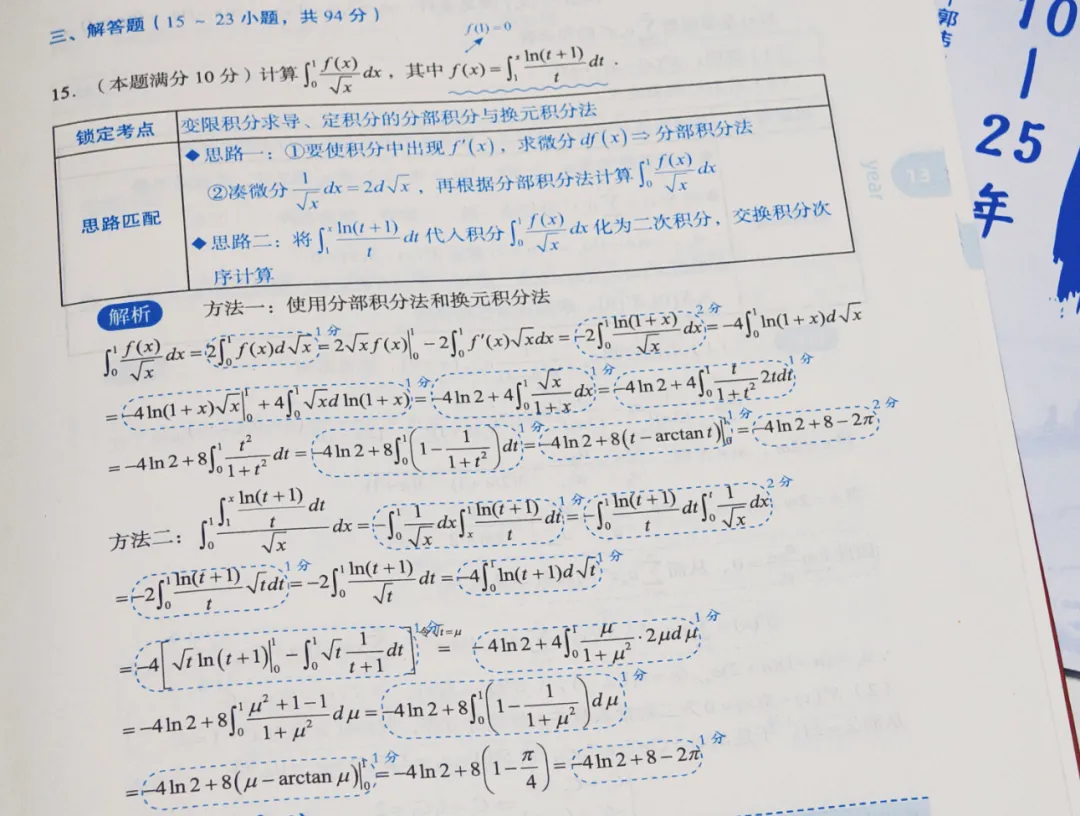 三、解答题（15 ~ 23 小题，共 94 分）
f(1)=0
15.（本题满分 10 分）计算∫₀¹ f(x)/√x dx，其中 f(x)=∫₁ˣ ln(t+1)/t dt.
锁定考点 变限积分求导、定积分的分部积分与换元积分法
思路匹配
◆思路一：①要使积分中出现 f′(x)，求微分 df(x)⇒分部积分法
②凑微分 1/√x dx=2d√x，再根据分部积分法计算∫₀¹ f(x)/√x dx
◆思路二：将∫₁ˣ ln(t+1)/t dt 代入积分∫₀¹ f(x)/√x dx 化为二次积分，交换积分次
序计算
解析 方法一：使用分部积分法和换元积分法
∫₀¹ f(x)/√x dx = 2∫₀¹ f(x)d√x 1分 = 2√x f(x)|₀¹ − 2∫₀¹ f′(x)√x dx = −2∫₀¹ ln(1+x)/√x dx 2分 = −4∫₀¹ ln(1+x)d√x
= −4ln(1+x)√x|₀¹ + 4∫₀¹ √x d ln(1+x) 1分 = −4ln2+4∫₀¹ √x/(1+x) dx 1分 = −4ln2+4∫₀¹ t/(1+t²) 2tdt 1分
= −4ln2+8∫₀¹ t²/(1+t²) dt = −4ln2+8∫₀¹ (1−1/(1+t²))dt 1分 = −4ln2+8(t−arctan t)|₀¹ 1分 = −4ln2+8−2π 2分
方法二：∫₀¹ (∫₁ˣ ln(t+1)/t dt)/√x dx = −∫₀¹ 1/√x dx∫ₓ¹ ln(t+1)/t dt 1分 = −∫₀¹ ln(t+1)/t dt∫₀ᵗ 1/√x dx 2分
= −2∫₀¹ ln(t+1)/t √t dt 1分 = −2∫₀¹ ln(t+1)/√t dt = −4∫₀¹ ln(t+1)d√t 1分
= −4[√t ln(t+1)|₀¹ − ∫₀¹ √t 1/(t+1) dt] 1分 令√t=μ = −4ln2+4∫₀¹ μ/(1+μ²)·2μdμ 1分
= −4ln2+8∫₀¹ (μ²+1−1)/(1+μ²) dμ = −4ln2+8∫₀¹ (1−1/(1+μ²))dμ 1分
= −4ln2+8(μ−arctan μ)|₀¹ 1分 = −4ln2+8(1−π/4) = −4ln2+8−2π 1分
year
10
25
年